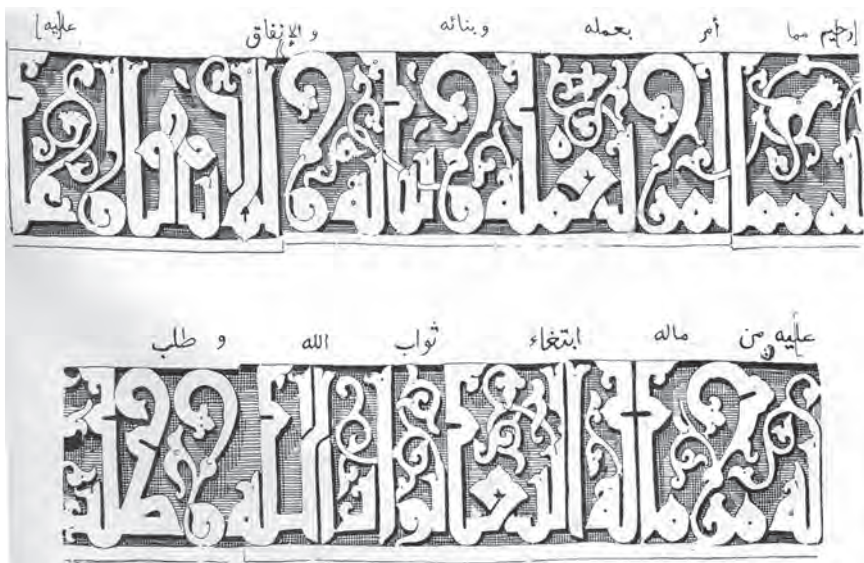 [رحيم مما أمر بعمله وبنائه والإنفاق عليه]
عليه من ماله ابتغاء ثواب الله و طلب